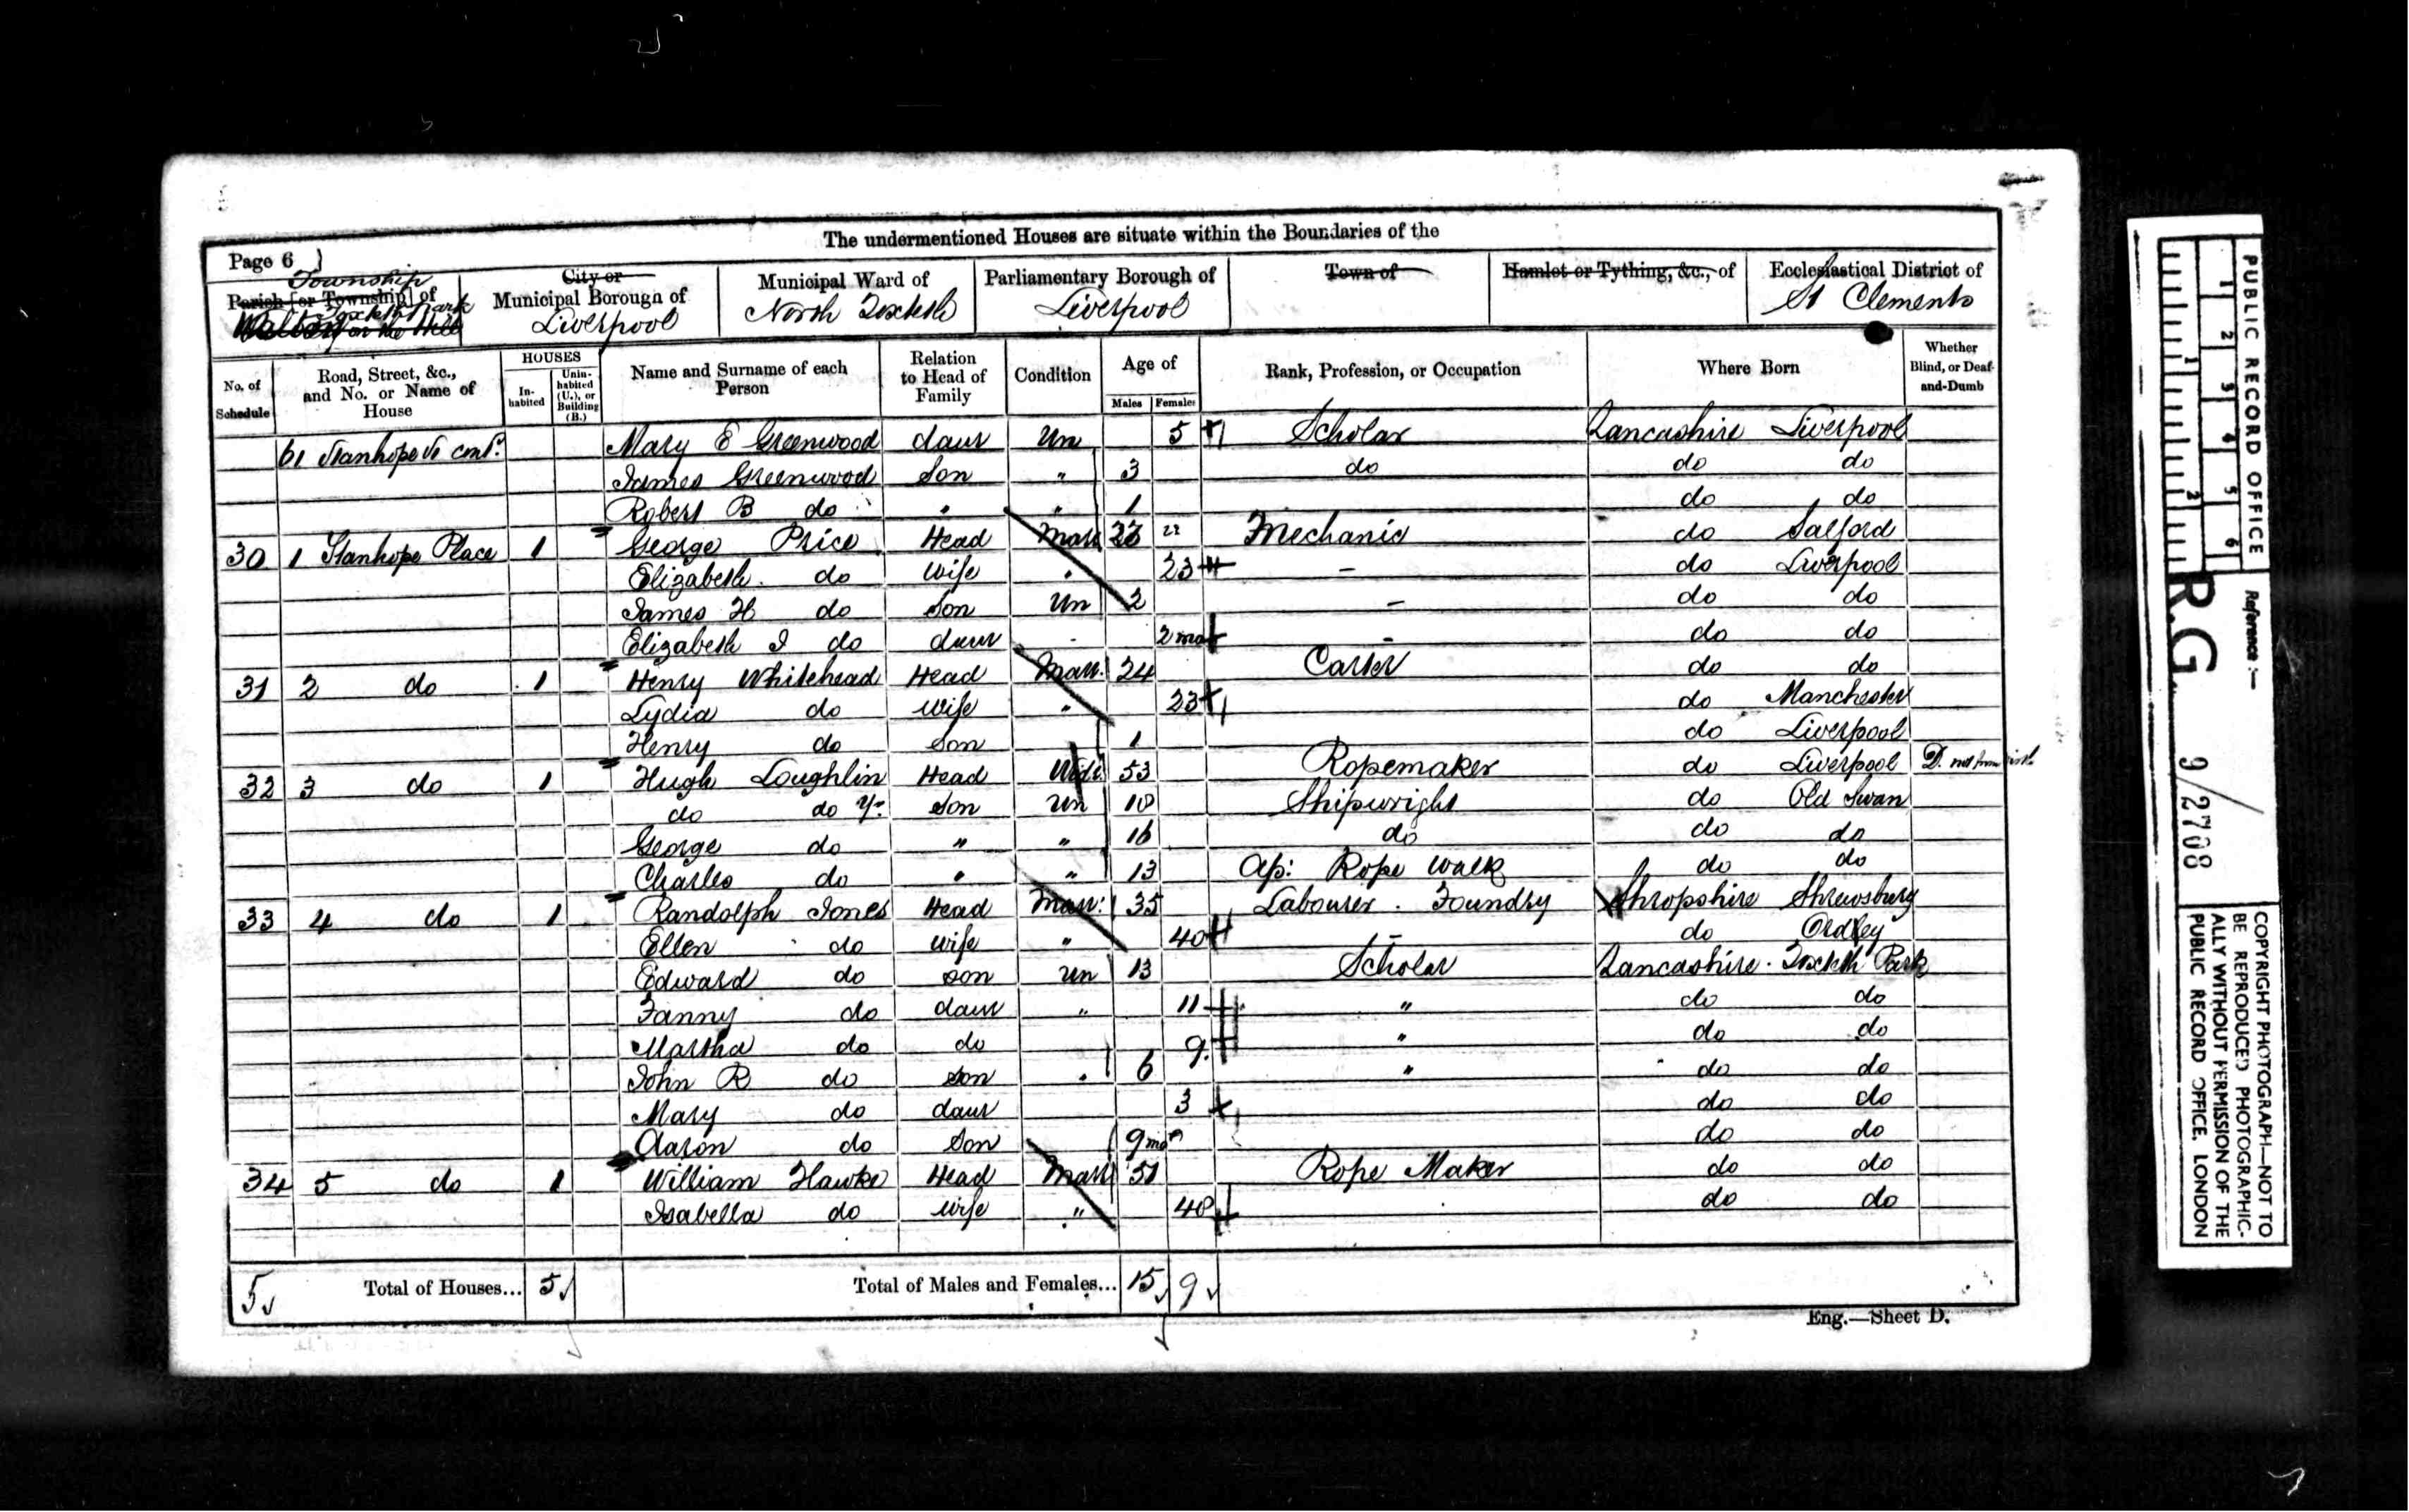 The undermentioned Houses are situate within the Boundaries of the
Page 6
Township
Parish [or Township] of
Toxteth Park
Walton on the Hill
City or
Municipal Borough of
Liverpool
Municipal Ward of
North Toxteth
Parliamentary Borough of
Liverpool
Town of
Hamlet or Tything, &c., of
Ecclesiastical District of
St Clements
No. of Schedule
Road, Street, &c., and No. or Name of House
HOUSES
In-habited
Unin-habited (U.), or Building (B.)
Name and Surname of each Person
Relation to Head of Family
Condition
Age of
Males
Females
Rank, Profession, or Occupation
Where Born
Whether Blind, or Deaf-and-Dumb
61 Stanhope St cont. Mary E Greenwood daur Un 5 Scholar Lancashire Liverpool
James Greenwood Son " 3 do do do
Robert B do " " 1 do do
30 1 Stanhope Place 1 George Price Head Marr 22 Mechanic do Salford
Elizabeth do Wife " 23 - do Liverpool
James H do Son Un 2 - do do
Elizabeth I do daur - 2 mo - do do
31 2 do 1 Henry Whitehead Head Marr. 24 Carter do do
Lydia do Wife " 23 do Manchester
Henry do Son 1 do Liverpool
32 3 do 1 Hugh Loughlin Head Widr 53 Ropemaker do Liverpool D. not from
do do Yr Son Un 18 Shipwright do Old Swan
George do " " 16 do do do
Charles do " " 13 Ap: Rope Walk do do
33 4 do 1 Randolph Jones Head Marr: 35 Labourer . Foundry Shropshire Shrewsbury
Ellen do Wife " 40 - do
Edward do son Un 13 Scholar Lancashire . Toxteth Park
Fanny do daur " 11 " do do
Martha do do 9 " do do
John R do Son " 6 " do do
Mary do daur 3 do do
Aaron do Son 9 mos do do
34 5 do 1 William Hawke Head Marr 51 Rope Maker do do
Isabella do Wife " 48 do do
5 Total of Houses... 5 Total of Males and Females... 15 9
Eng.—Sheet D.
PUBLIC RECORD OFFICE
1 2 3 4 5 6
1 2
Reference :—
R.G. 9/2708
COPYRIGHT PHOTOGRAPH—NOT TO
BE REPRODUCED PHOTOGRAPHIC-
ALLY WITHOUT PERMISSION OF THE
PUBLIC RECORD OFFICE, LONDON